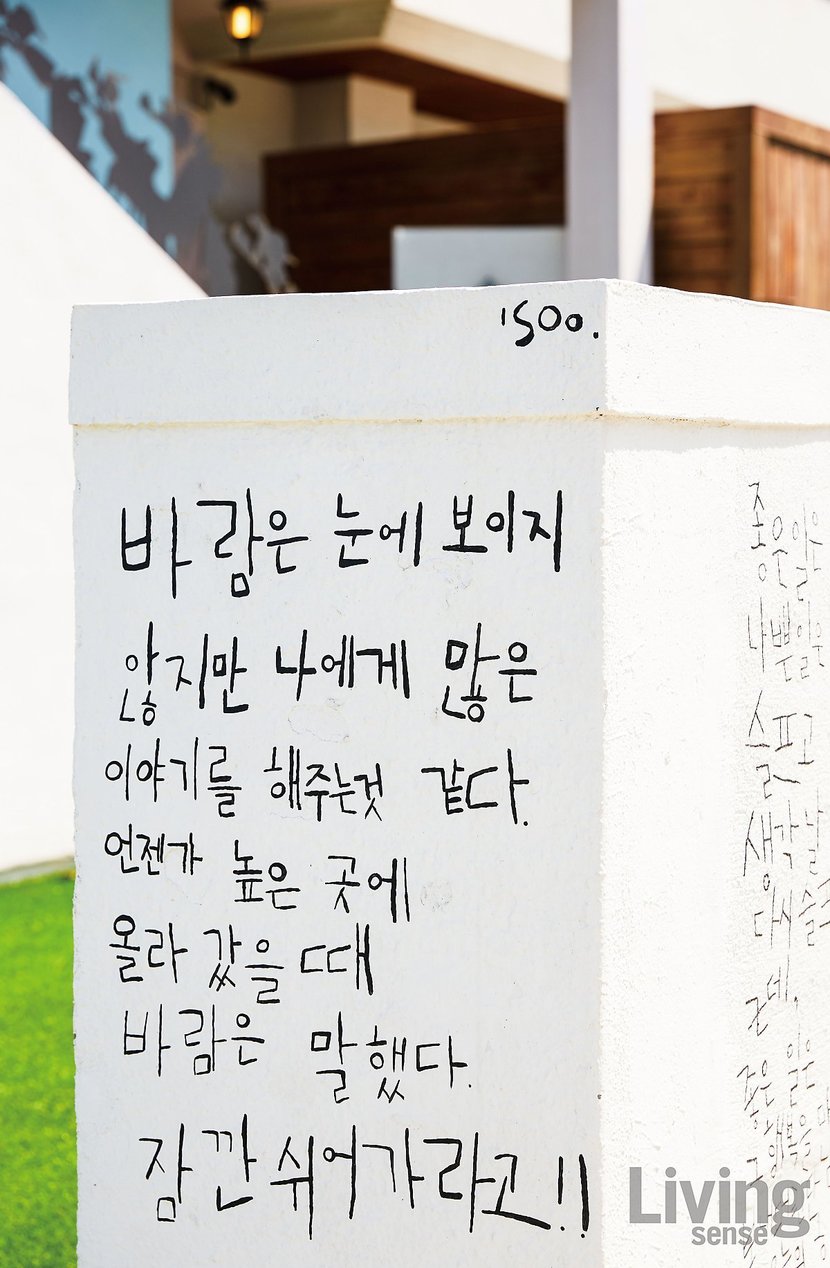 ISOO.
바람은 눈에 보이지
않지만 나에게 많은
이야기를 해주는것 같다.
언젠가 높은 곳에
올라 갔을 때
바람은 말했다.
잠깐 쉬어가라고!!
좋은일은
나쁜일은
슬프고
생각날
다시
근데,
좋은 일은
행복을
Living
sense